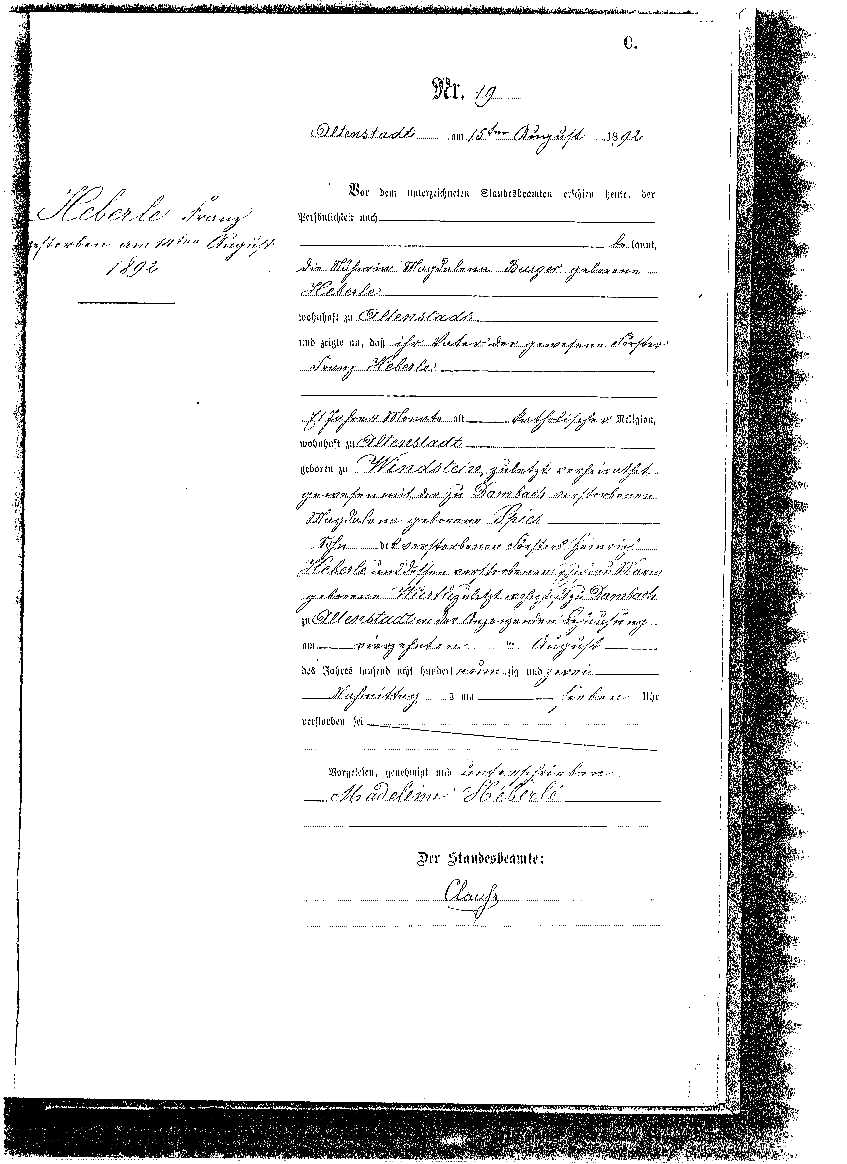 C.
Nr. 19
Altenstadt am 15ten August 1892
Heberle Franz
gestorben am 14ten August
1892
Vor dem unterzeichneten Standesbeamten erschien heute, der
Persönlichkeit nach
bekannt,
die Näherin Magdalena Burger geborene
Heberle
wohnhaft zu Altenstadt
und zeigte an, daß ihr Vater der gewesene Förster
Franz Heberle
Jahre Monate alt katholischer Religion,
wohnhaft zu Altenstadt
geboren zu Windstein, zuletzt verheirathet
gewesen mit der zu Dambach verstorbenen
Magdalena geborene Spies
Sohn des verstorbenen Försters Heinrich
Heberle und dessen verstorbenen Ehefrau Maria
geborene zuletzt zu Dambach
zu Altenstadt in der Behausung
am vierzehnten August
des Jahres tausend acht hundert neunzig und zwei
Nachmittags um sieben Uhr
verstorben sei
Vorgelesen, genehmigt und unterschrieben
Madeleine Héberlé
Der Standesbeamte: